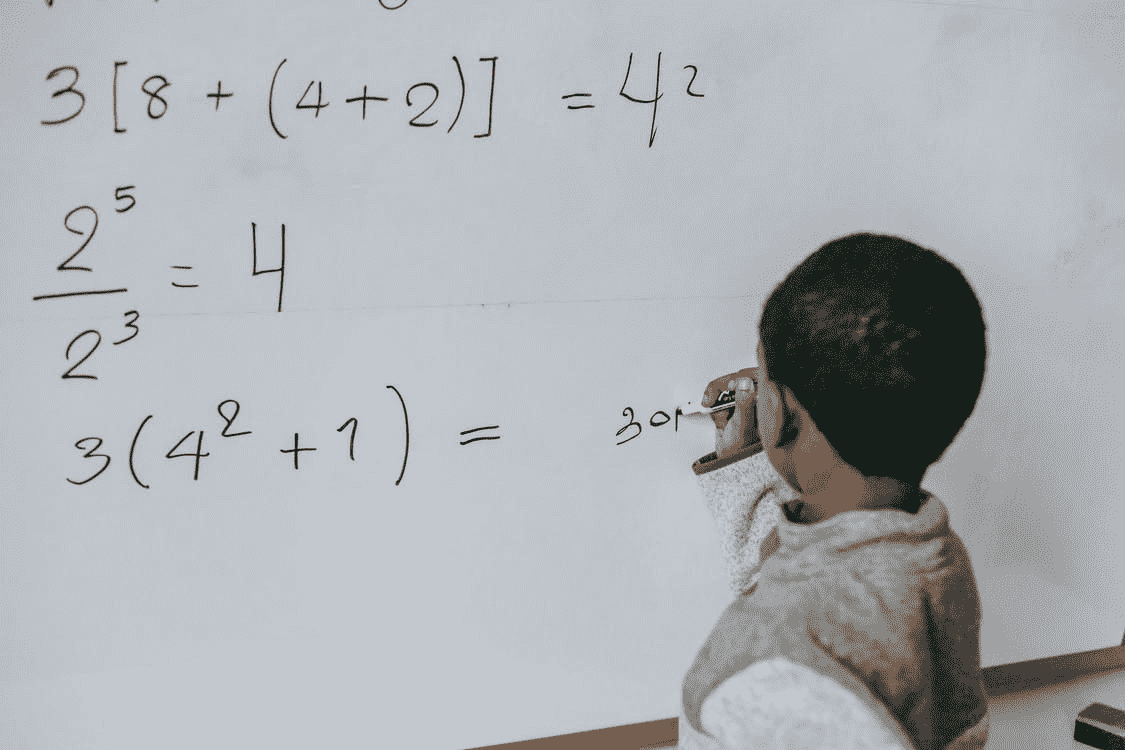 3[8 + (4+2)] = 42
2⁵/2³ = 4
3(4² + 1) =
30